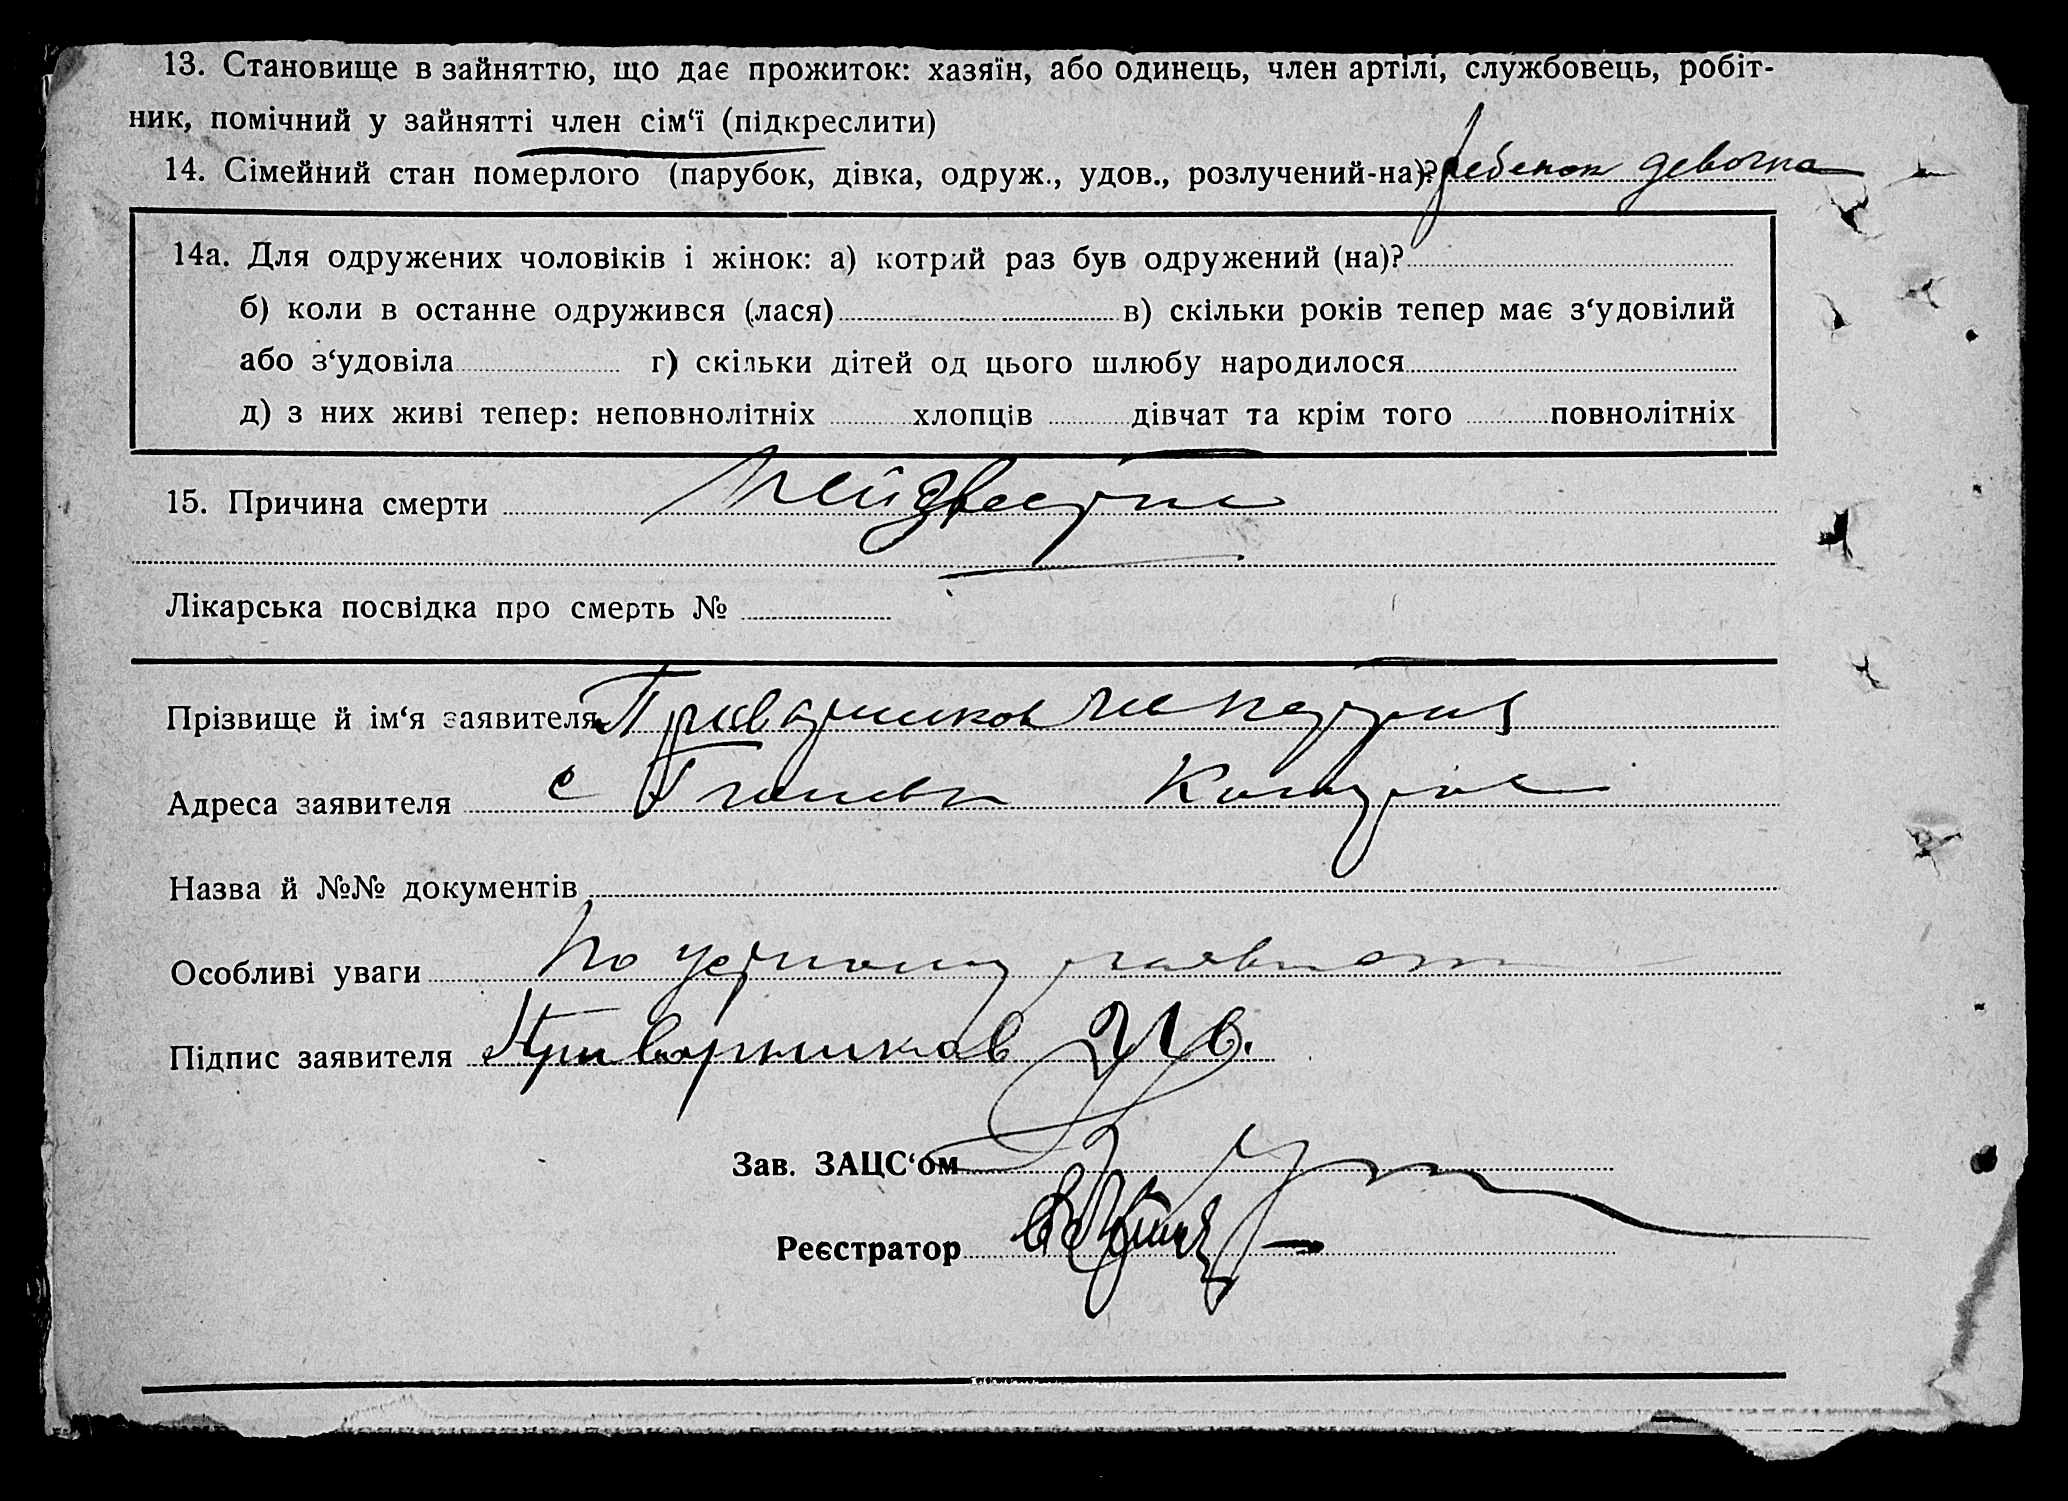 13. Становище в зайняттю, що дає прожиток: хазяїн, або одинець, член артілі, службовець, робіт-
ник, помічний у зайнятті член сім‘ї (підкреслити)
14. Сімейний стан померлого (парубок, дівка, одруж., удов., розлучений-на)? ребенок девочка
14а. Для одружених чоловіків і жінок: а) котрий раз був одружений (на)?
б) коли в останнє одружився (лася) в) скільки років тепер має з‘удовілий
або з‘удовіла г) скільки дітей од цього шлюбу народилося
д) з них живі тепер: неповнолітніх хлопців дівчат та крім того повнолітніх
15. Причина смерти неизвестна
Лікарська посвідка про смерть №
Прізвище й ім‘я заявителя
Адреса заявителя с
Назва й №№ документів
Особливі уваги По устному
Підпис заявителя Приворотников
Зав. ЗАЦС‘ом
Реєстратор